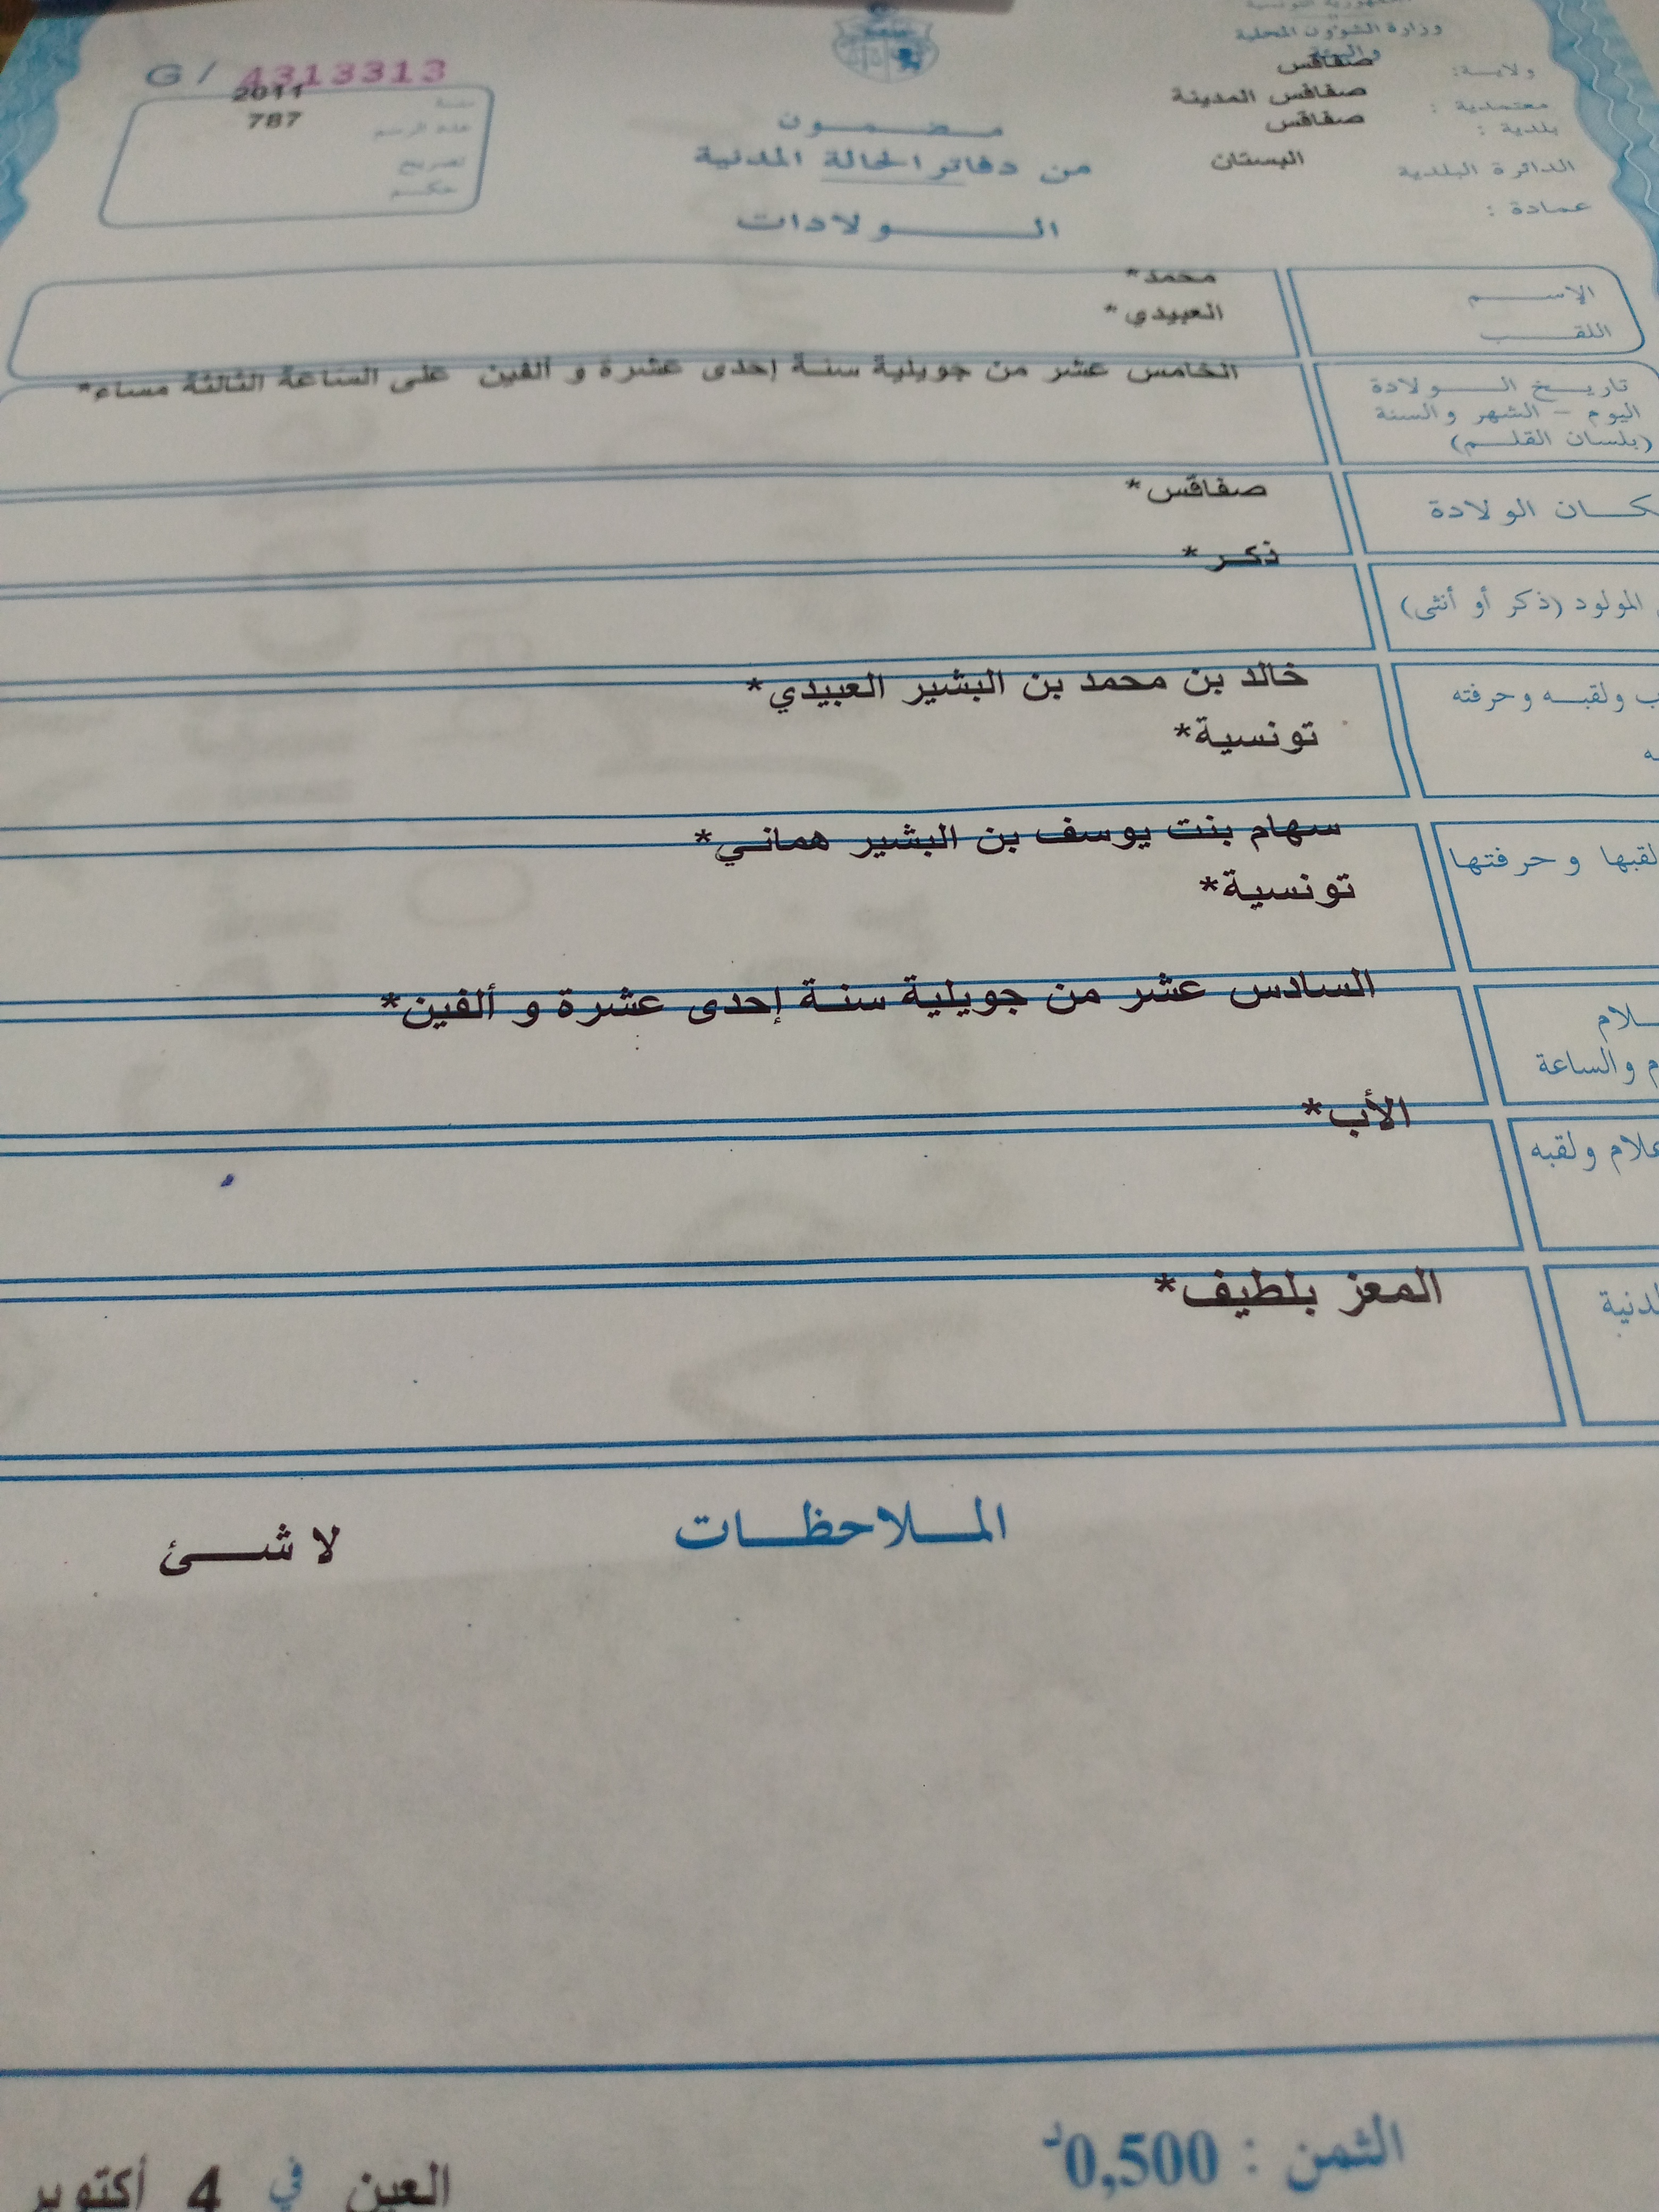 الجمهورية التونسية
وزارة الشؤون المحلية
والبيئة
ولاية: صفاقس
معتمدية : صفاقس المدينة
بلدية : صفاقس
الدائرة البلدية البستان
عمادة :
G / 4313313
سنة 2011
عدد الرسم 787
تصريح
حكم
مضمون
من دفاتر الحالة المدنية
الولادات
الإسم محمد*
اللقب العبيدي*
تاريخ الولادة
اليوم - الشهر والسنة
(بلسان القلم)
الخامس عشر من جويلية سنة إحدى عشرة و ألفين على الساعة الثالثة مساء*
كان الولادة صفاقس*
المولود (ذكر أو أنثى) ذكر*
ب ولقبه وحرفته خالد بن محمد بن البشير العبيدي*
ه تونسية*
لقبها وحرفتها سهام بنت يوسف بن البشير هماني*
تونسية*
لام
م والساعة
السادس عشر من جويلية سنة إحدى عشرة و ألفين*
علام ولقبه الأب*
لدنية المعز بلطيف*
الملاحظات
لا شئ
الثمن : 0,500د
العين في 4 أكتوبر